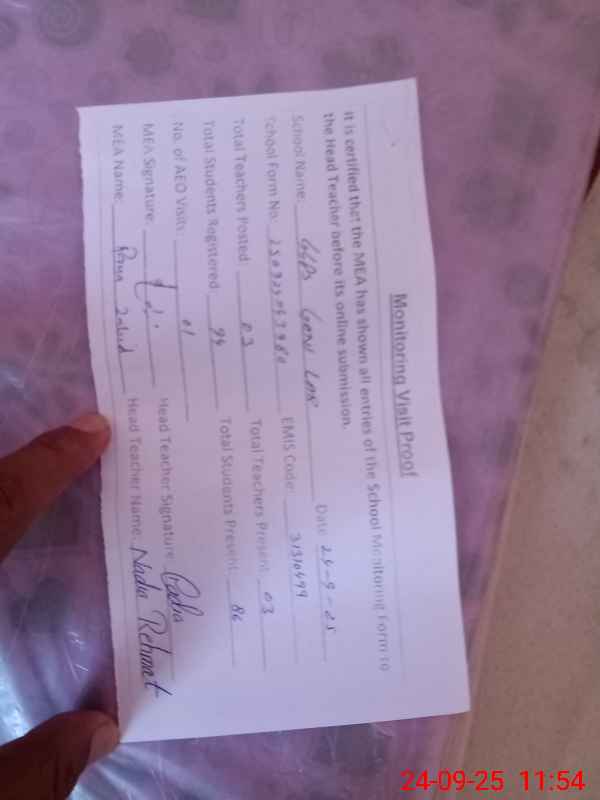 Monitoring Visit Proof
It is certified that the MEA has shown all entries of the School Monitoring Form to
the Head Teacher before its online submission.
Date 24-9-25
School Name: GGPS
School Form No: EMIS Code: 31310499
Total Teachers Posted: 03 Total Teachers Present 03
Total Students Registered: 94 Total Students Present 86
No. of AEO Visits: 01
MEA Signature: Head Teacher Signature:
MEA Name: Head Teacher Name: Nadia Rehmat
24-09-25 11:54